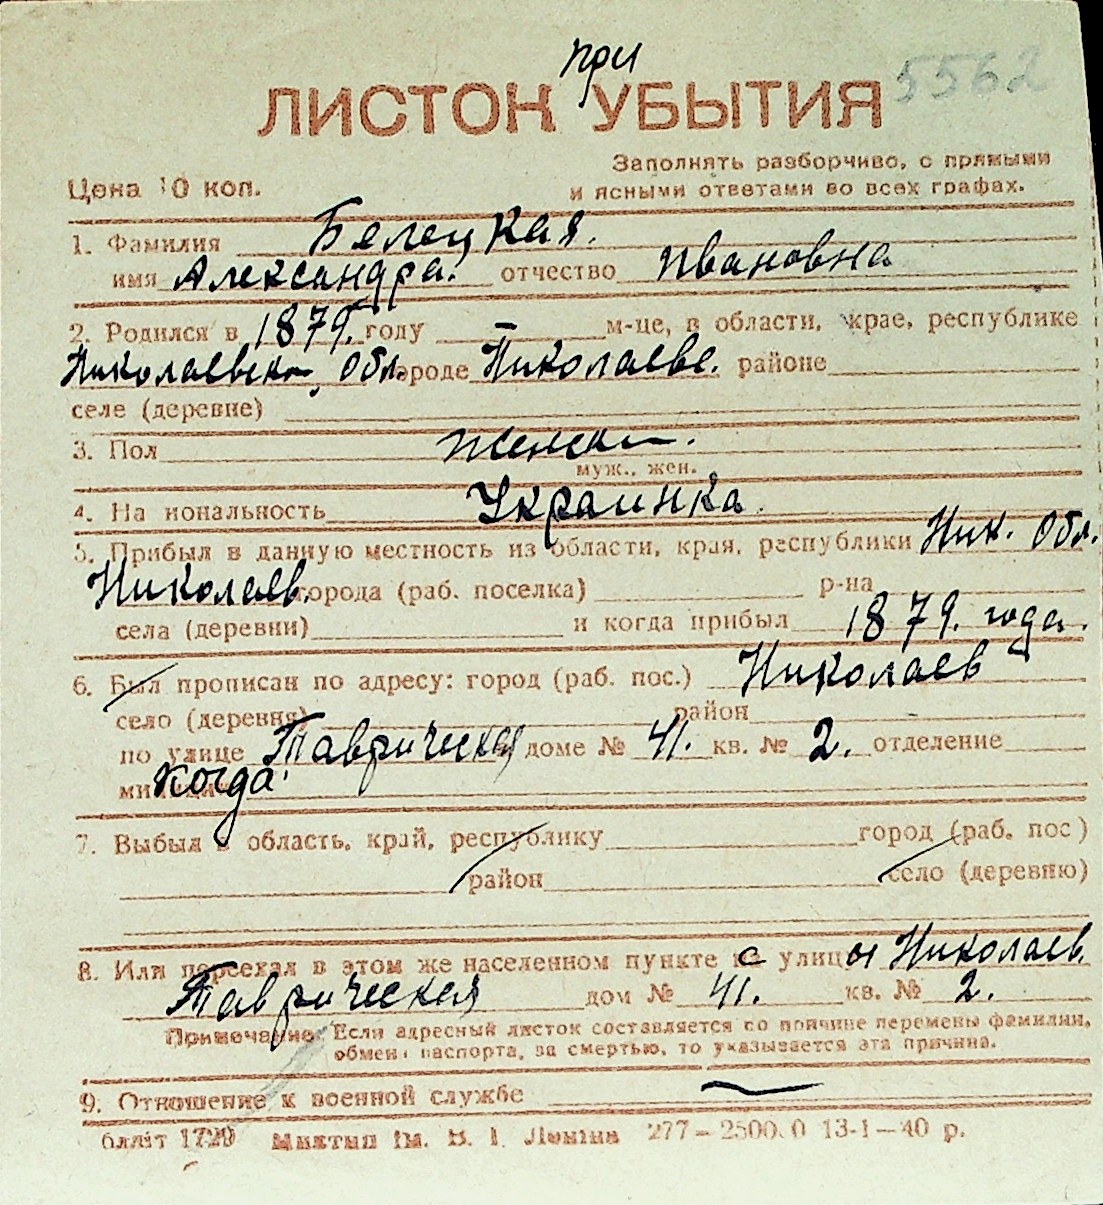 при
ЛИСТОК УБЫТИЯ 5562
Заполнять разборчиво, с прямыми
Цена 10 коп. и ясными ответами во всех графах.
1. Фамилия Белецкая.
имя Александра. отчество Ивановна
2. Родился в 1879. году — м-це, в области, крае, республике
Николаевск обл. городе Николаеве. районе
селе (деревне)
3. Пол женск.
муж., жен.
4. Национальность Украинка.
5. Прибыл в данную местность из области, края, республики Ник. Обл.
Николаев. города (раб. поселка) р-на
села (деревни) и когда прибыл 1879. года.
6. Был прописан по адресу: город (раб. пос.) Николаев
село (деревня) район
по улице Таврическая доме № 41. кв. № 2. отделение
когда.
7. Выбыл в область, край, республику город (раб. пос)
район село (деревню)
8. Или переехал в этом же населенном пункте с улицы Николаев.
Таврическая дом № 41. кв. № 2.
Примечание: Если адресный листок составляется по причине перемены фамилии,
обмена паспорта, за смертью, то указывается эта причина.
9. Отношение к военной службе —
1729 277—2500.0 13-1—40 р.